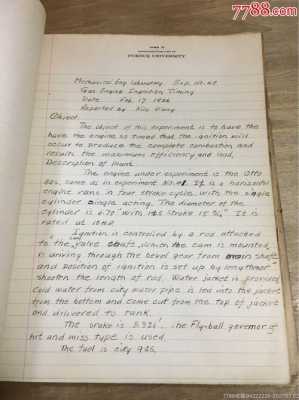 7788.com
PURDUE UNIVERSITY
Mechanical Eng Laboratory Exp. No.
Gas Engine Ignition Timing
Date Feb. 17
Reported by
Object.
The object of this experiment is to have the
have the engine so timed that the ignition will
occur to produce the complete combustion and
results the maximum efficiency and load.
Description of Plant.
The engine under experiment is the Otto
gas, same as in experiment It is a horizontal
engine runs in four stroke cycle with the single
cylinder single acting. The diameter of the
cylinder is with its stroke It is
rated at
Ignition is controlled by a rod attached
to the valve shaft, which the cam is mounted,
is driving through the bevel gear from main shaft
and position of ignition is set up by lengthner
shorten the length of rod. Water jacket is provided
Cold water from city water pipe is led into the jacket
from the bottom and come out from the top of jacket
and delivered to tank.
The brake is The Flyball governor of
hit and miss type is used.
The fuel is city gas.